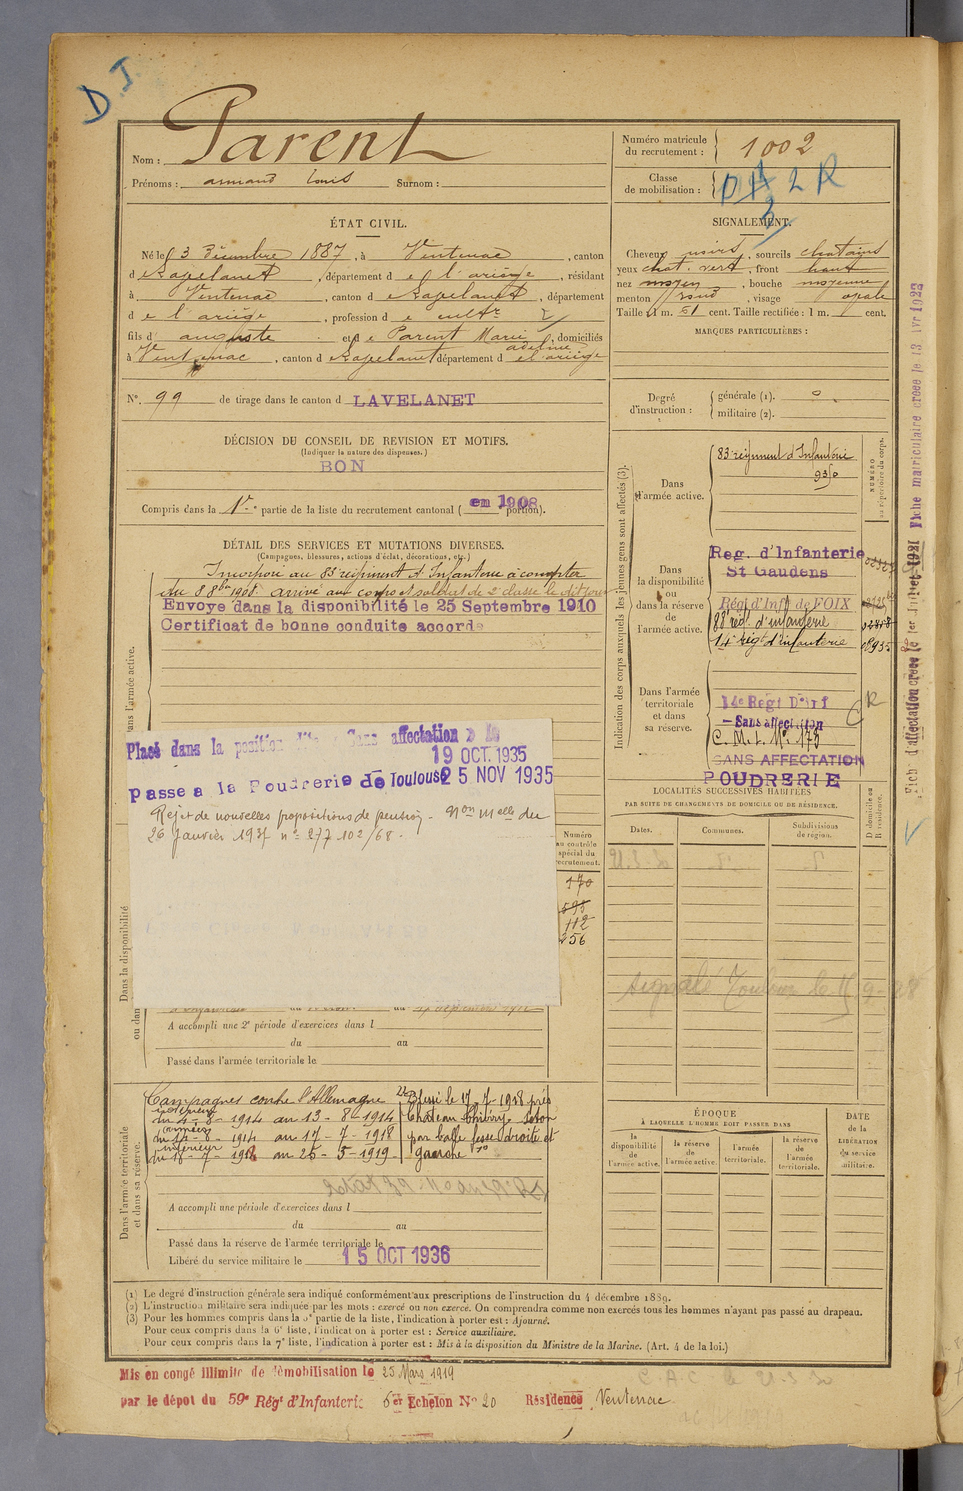 D I
Nom : Parent
Prénoms : armand louis Surnom :
Numéro matricule du recrutement : 1002
Classe de mobilisation :
2 R
ÉTAT CIVIL.
Né le 3 Décembre 1887, à Ventenac, canton
d e Lapelanet, département d e l'ariège, résidant
à Ventenac, canton d e Lapelanet, département
d e l'ariège, profession d e cultr
fils d' auguste et d e Parent Marie adeline, domiciliés
à Ventenac, canton d e Lapelanet département d e l'ariège
SIGNALEMENT.
Cheveux noirs, sourcils chatains
yeux chat. vert, front haut
nez moyen, bouche moyenne
menton rond, visage ovale
Taille 1 m. 51 cent. Taille rectifiée : 1 m. cent.
MARQUES PARTICULIÈRES :
N°. 99 de tirage dans le canton d LAVELANET
Degré d'instruction :
générale (1).
militaire (2).
DÉCISION DU CONSEIL DE REVISION ET MOTIFS.
(Indiquer la nature des dispenses.)
BON
Compris dans la 1re partie de la liste du recrutement cantonal ( portion).
en 1908
DÉTAIL DES SERVICES ET MUTATIONS DIVERSES.
(Campagnes, blessures, actions d'éclat, décorations, etc.)
Incorporé au 83 régiment d'Infanterie à compter
du 8 8bre 1908. arrivé au corps et soldat de 2e classe le dit jour
Envoyé dans la disponibilité le 25 Septembre 1910
Certificat de bonne conduite accordé
Placé dans la position dite Sans affectation
19 OCT. 1935
Passe a la Poudrerie de Toulouse 25 NOV 1935
Rejet de nouvelles propositions de pension - Non melle du
26 Janvier 1937 n° 277 102/68.
Numéro au contrôle spécial du recrutement.
170
595
112
256
Dans la disponibilité
A accompli une 2e période d'exercices dans l
du au
Passé dans l'armée territoriale le
Indication des corps auxquels les jeunes gens sont affectés (3).
NUMÉRO au répertoire du corps.
Dans l'armée active.
83 régiment d'Infanterie
Dans la disponibilité ou dans la réserve de l'armée active.
Reg. d'Infanterie
St Gaudens
Régt d'Inf de FOIX
88 régt d'infanterie
14 Régt d'infanterie
Dans l'armée territoriale et dans sa réserve.
14e Regt D'Inf
Sans affectation
C. M. t. N° 173
SANS AFFECTATION
POUDRERIE
LOCALITÉS SUCCESSIVES HABITÉES
PAR SUITE DE CHANGEMENTS DE DOMICILE OU DE RÉSIDENCE.
Dates. Communes. Subdivisions de région. D domicile ou R résidence.
Signalé Toulouse le
Fiche d'affectation créée le 1er Juillet 1921 Fiche matriculaire créée le 13 Avr 1922
Dans l'armée territoriale et dans sa réserve.
Campagnes contre l'Allemagne
intérieur
du 4-8-1914 au 13-8-1914
(armées)
du 14-8-1914 au 17-7-1918
intérieur
du 18-7-1918 au 25-5-1919
Blessé le 17-7-1918 près
Château Thierry
par balle fesse droite et
gauche
A accompli une période d'exercices dans l
du au
Passé dans la réserve de l'armée territoriale le
Libéré du service militaire le 15 OCT 1936
ÉPOQUE
À LAQUELLE L'HOMME DOIT PASSER DANS
la disponibilité de l'armée active.
la réserve de l'armée active.
l'armée territoriale.
la réserve de l'armée territoriale.
DATE de la LIBÉRATION du service militaire.
(1) Le degré d'instruction générale sera indiqué conformément aux prescriptions de l'instruction du 4 décembre 1889.
(2) L'instruction militaire sera indiquée par les mots : exercé ou non exercé. On comprendra comme non exercés tous les hommes n'ayant pas passé au drapeau.
(3) Pour les hommes compris dans la 5e partie de la liste, l'indication à porter est : Ajourné.
Pour ceux compris dans la 6e liste, l'indication à porter est : Service auxiliaire.
Pour ceux compris dans la 7e liste, l'indication à porter est : Mis à la disposition du Ministre de la Marine. (Art. 4 de la loi.)
Mis en congé illimité de démobilisation le 25 Mars 1919
par le dépôt du 59e Régt d'Infanterie 6er Echelon N° 20 Résidence Ventenac